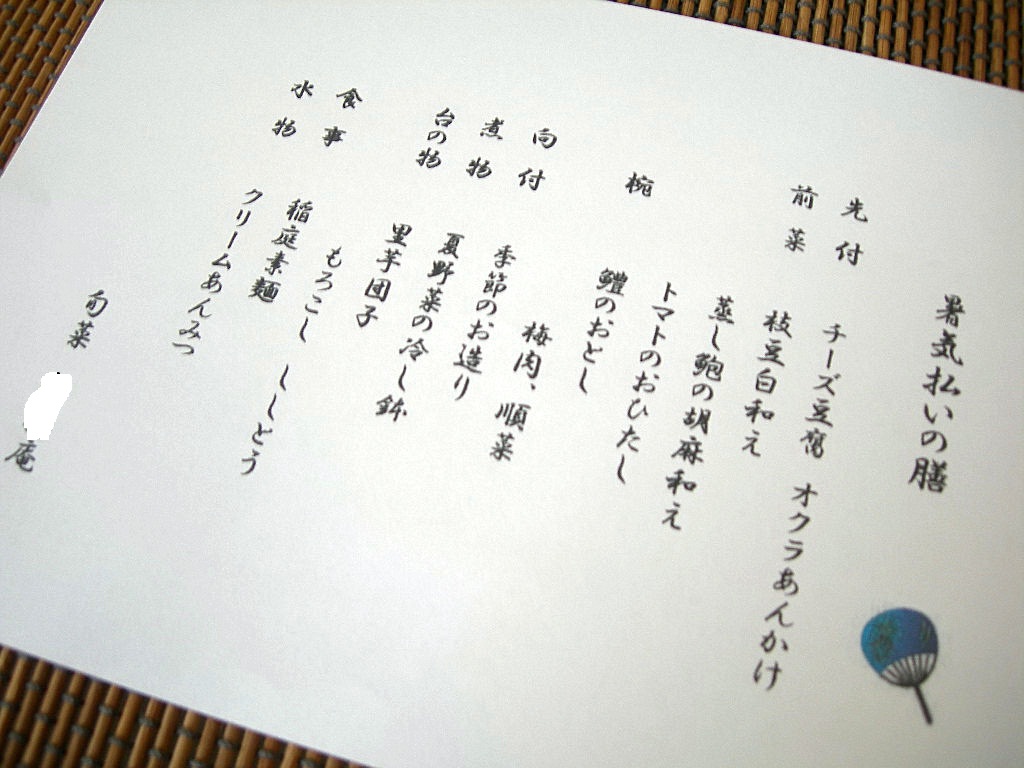 暑気払いの膳
先付 チーズ豆腐 オクラあんかけ
前菜 枝豆白和え
蒸し鮑の胡麻和え
トマトのおひたし
椀 鱧のおとし
梅肉、順菜
向付 季節のお造り
煮物 夏野菜の冷し鉢
台の物 里芋団子
もろこし ししとう
食事 稲庭素麺
水物 クリームあんみつ
旬菜
庵